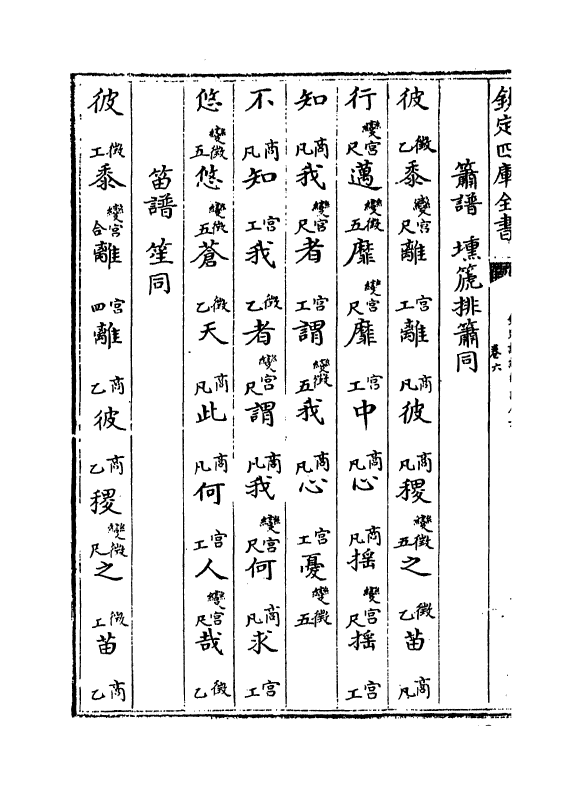 欽定四庫全書
卷六
簫譜 壎篪排簫同
彼徵乙黍變宮尺離宮工離商凡彼商凡稷變徵五之徵乙苗商凡
行變宮尺邁變徵五靡變宮尺靡宮工中商凡心商凡搖變宮尺搖宮工
知商凡我變宮尺者宮工謂變徵五我商凡心宮工憂變徵五
不商凡知宮工我徵乙者變宮尺謂商凡我變宮尺何商凡求宮工
悠變徵五悠變徵五蒼徵乙天商凡此商凡何宮工人變宮尺哉徵乙
笛譜 笙同
彼徵工黍變宮合離宮四離商乙彼商乙稷變徵尺之徵工苗商乙